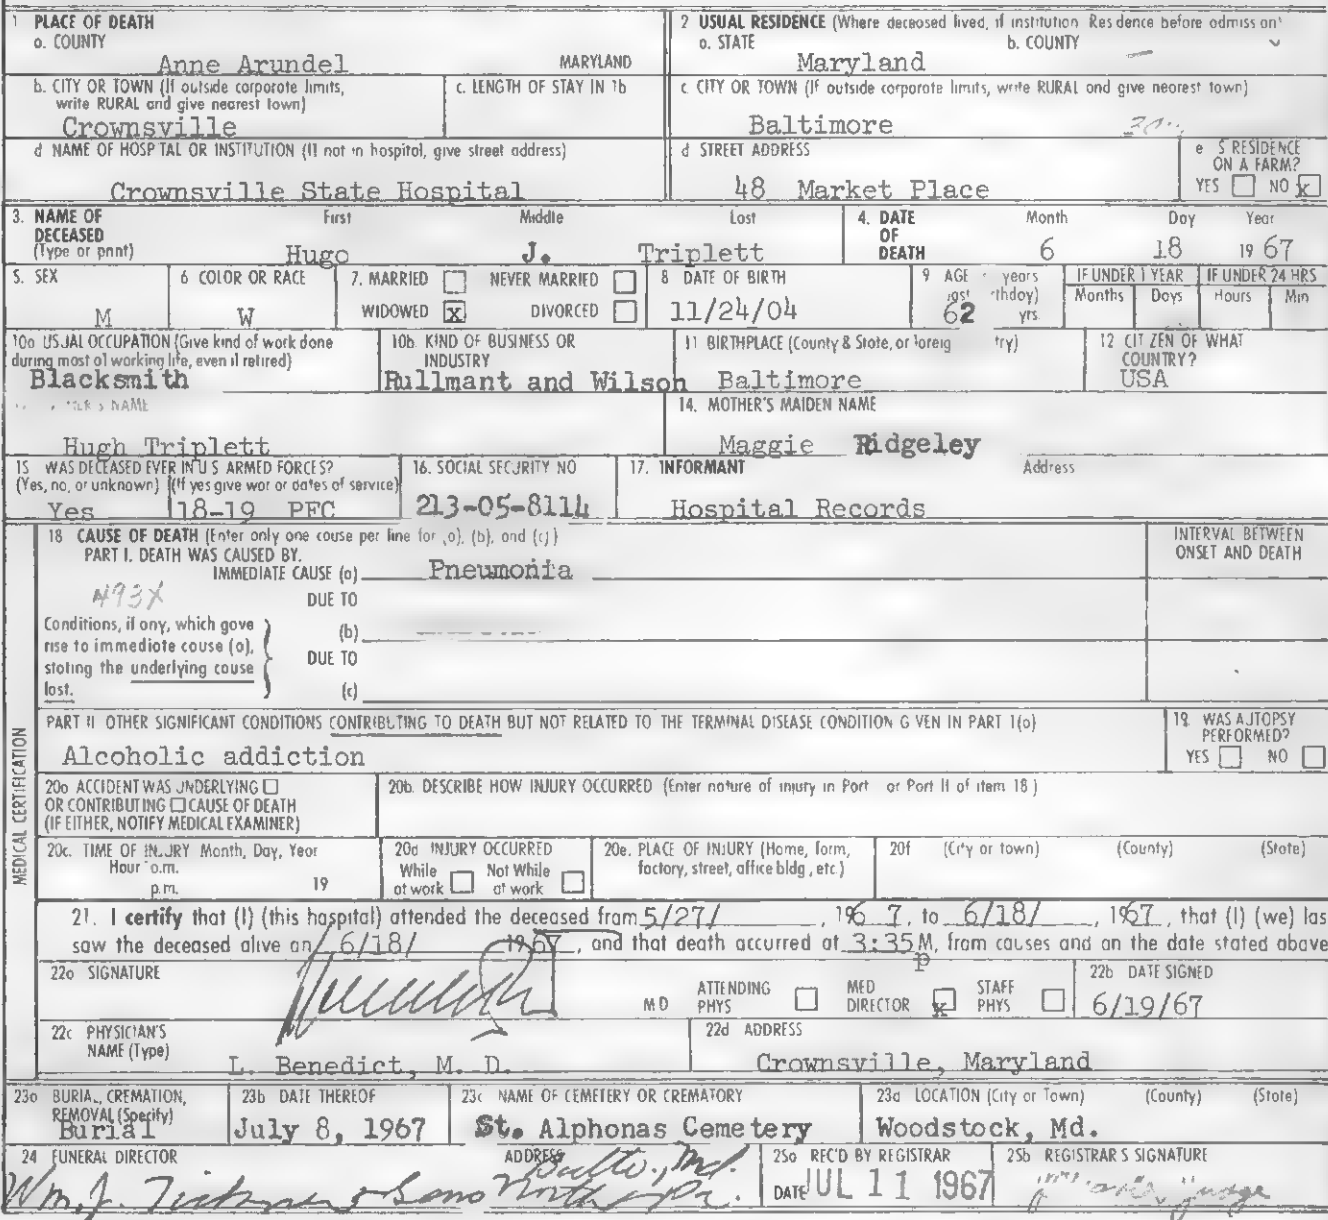 1 PLACE OF DEATH
a. COUNTY
Anne Arundel MARYLAND
2 USUAL RESIDENCE (Where deceased lived, if institution Residence before admission)
a. STATE b. COUNTY
Maryland
b. CITY OR TOWN (If outside corporate limits, write RURAL and give nearest town)
Crownsville
c. LENGTH OF STAY IN 1b
c CITY OR TOWN (If outside corporate limits, write RURAL and give nearest town)
Baltimore
d NAME OF HOSPITAL OR INSTITUTION (If not in hospital, give street address)
Crownsville State Hospital
d STREET ADDRESS
48 Market Place
e IS RESIDENCE ON A FARM?
YES NO x
3. NAME OF DECEASED (Type or print)
First Middle Last
Hugo J. Triplett
4. DATE OF DEATH
Month Day Year
6 18 19 67
5. SEX
M
6 COLOR OR RACE
W
7. MARRIED NEVER MARRIED
WIDOWED x DIVORCED
8 DATE OF BIRTH
11/24/04
9 AGE years
last birthday)
62 yrs.
IF UNDER 1 YEAR IF UNDER 24 HRS
Months Days Hours Min
10a USUAL OCCUPATION (Give kind of work done during most of working life, even if retired)
Blacksmith
10b. KIND OF BUSINESS OR INDUSTRY
Rullmant and Wilson
11 BIRTHPLACE (County & State, or foreign try)
Baltimore
12 CITIZEN OF WHAT COUNTRY?
USA
NAME
Hugh Triplett
14. MOTHER'S MAIDEN NAME
Maggie Ridgeley
15 WAS DECEASED EVER IN U S ARMED FORCES?
(Yes, no, or unknown) (If yes give war or dates of service)
Yes 18-19 PFC
16. SOCIAL SECURITY NO
213-05-8114
17. INFORMANT Address
Hospital Records
MEDICAL CERTIFICATION
18 CAUSE OF DEATH (Enter only one cause per line for (a), (b), and (c))
PART I. DEATH WAS CAUSED BY.
IMMEDIATE CAUSE (a) Pneumonia
INTERVAL BETWEEN ONSET AND DEATH
493X
DUE TO
Conditions, if any, which gave rise to immediate cause (a), stating the underlying cause last.
(b)
DUE TO
(c)
PART II OTHER SIGNIFICANT CONDITIONS CONTRIBUTING TO DEATH BUT NOT RELATED TO THE TERMINAL DISEASE CONDITION GIVEN IN PART 1(a)
Alcoholic addiction
19. WAS AUTOPSY PERFORMED?
YES NO
20a ACCIDENT WAS UNDERLYING
OR CONTRIBUTING CAUSE OF DEATH
(IF EITHER, NOTIFY MEDICAL EXAMINER)
20b. DESCRIBE HOW INJURY OCCURRED (Enter nature of injury in Part or Part II of item 18)
20c. TIME OF INJURY Month, Day, Year
Hour a.m.
p.m. 19
20d INJURY OCCURRED
While at work Not While at work
20e. PLACE OF INJURY (Home, farm, factory, street, office bldg, etc.)
20f (City or town) (County) (State)
21. I certify that (I) (this hospital) attended the deceased from 5/27/, 1967, to 6/18/, 1967, that (I) (we) las
saw the deceased alive on 6/18/ 1967, and that death occurred at 3:35 pM, from causes and on the date stated above
22a SIGNATURE
MD
ATTENDING PHYS MED DIRECTOR x STAFF PHYS
22b DATE SIGNED
6/19/67
22c PHYSICIAN'S NAME (Type)
L. Benedict, M. D.
22d ADDRESS
Crownsville, Maryland
23a BURIAL, CREMATION, REMOVAL (Specify)
Burial
23b DATE THEREOF
July 8, 1967
23c NAME OF CEMETERY OR CREMATORY
St. Alphonas Cemetery
23d LOCATION (City or Town) (County) (State)
Woodstock, Md.
24 FUNERAL DIRECTOR ADDRESS
Wm. J. Tickner & Sons North & Pa. Balto., Md.
25a REC'D BY REGISTRAR
DATE JUL 11 1967
25b REGISTRAR'S SIGNATURE
Judge